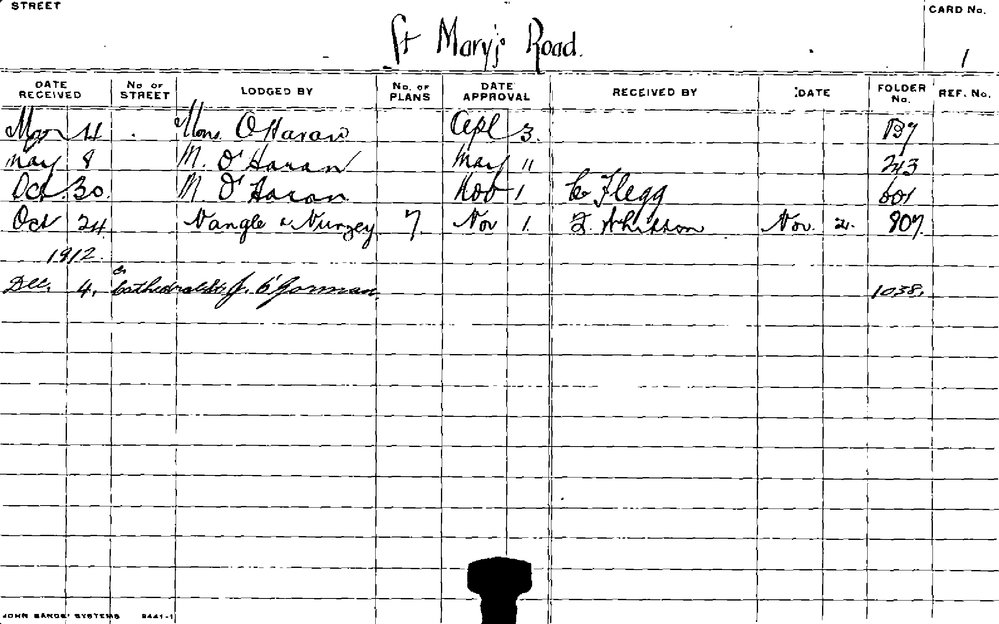 STREET
CARD No.
St Mary's Road.
1
DATE RECEIVED No OF STREET LODGED BY No. OF PLANS DATE APPROVAL RECEIVED BY DATE FOLDER No. REF. No.
Mar 4 Mons. O'Haran Apl 3
May 8 M. O'Haran May 11 243
Oct 30 M O'Haran Nov 1 C Flegg 601
Oct 24 Nangle & Nurzey 7. Nov 1. Nov. 21. 807.
1912.
Dec. 4. Cr Cathedral St J. O'Gorman. 1038.
JOHN SANDS' SYSTEMS 9441-1